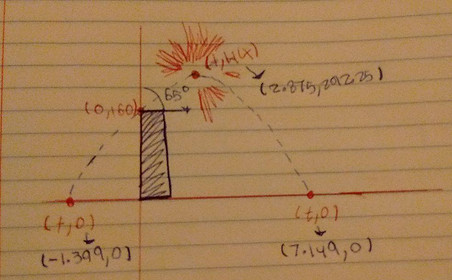 (t, H(t))
(2.875, 292.25)
65°
(0, 160)
(t, 0)
(t, 0)
(-1.399, 0)
(7.149, 0)